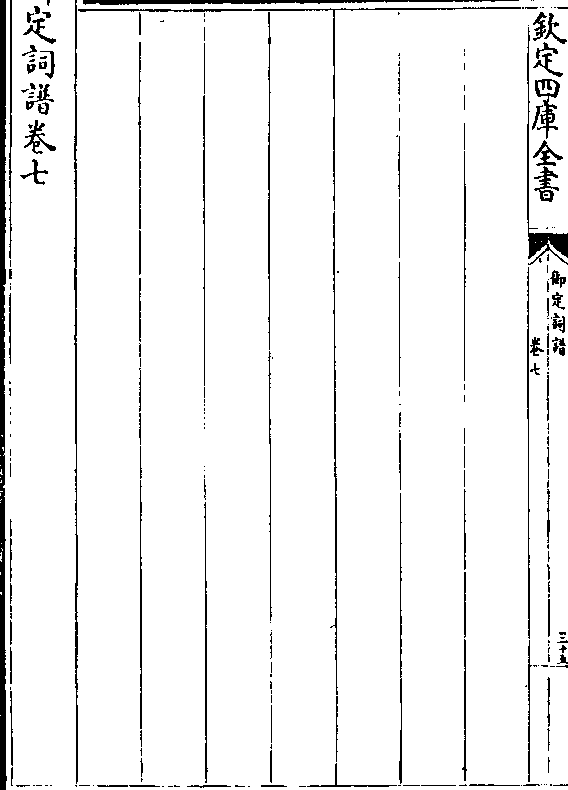 欽定四庫全書
御定詞譜
卷七
三十五
定詞譜卷七